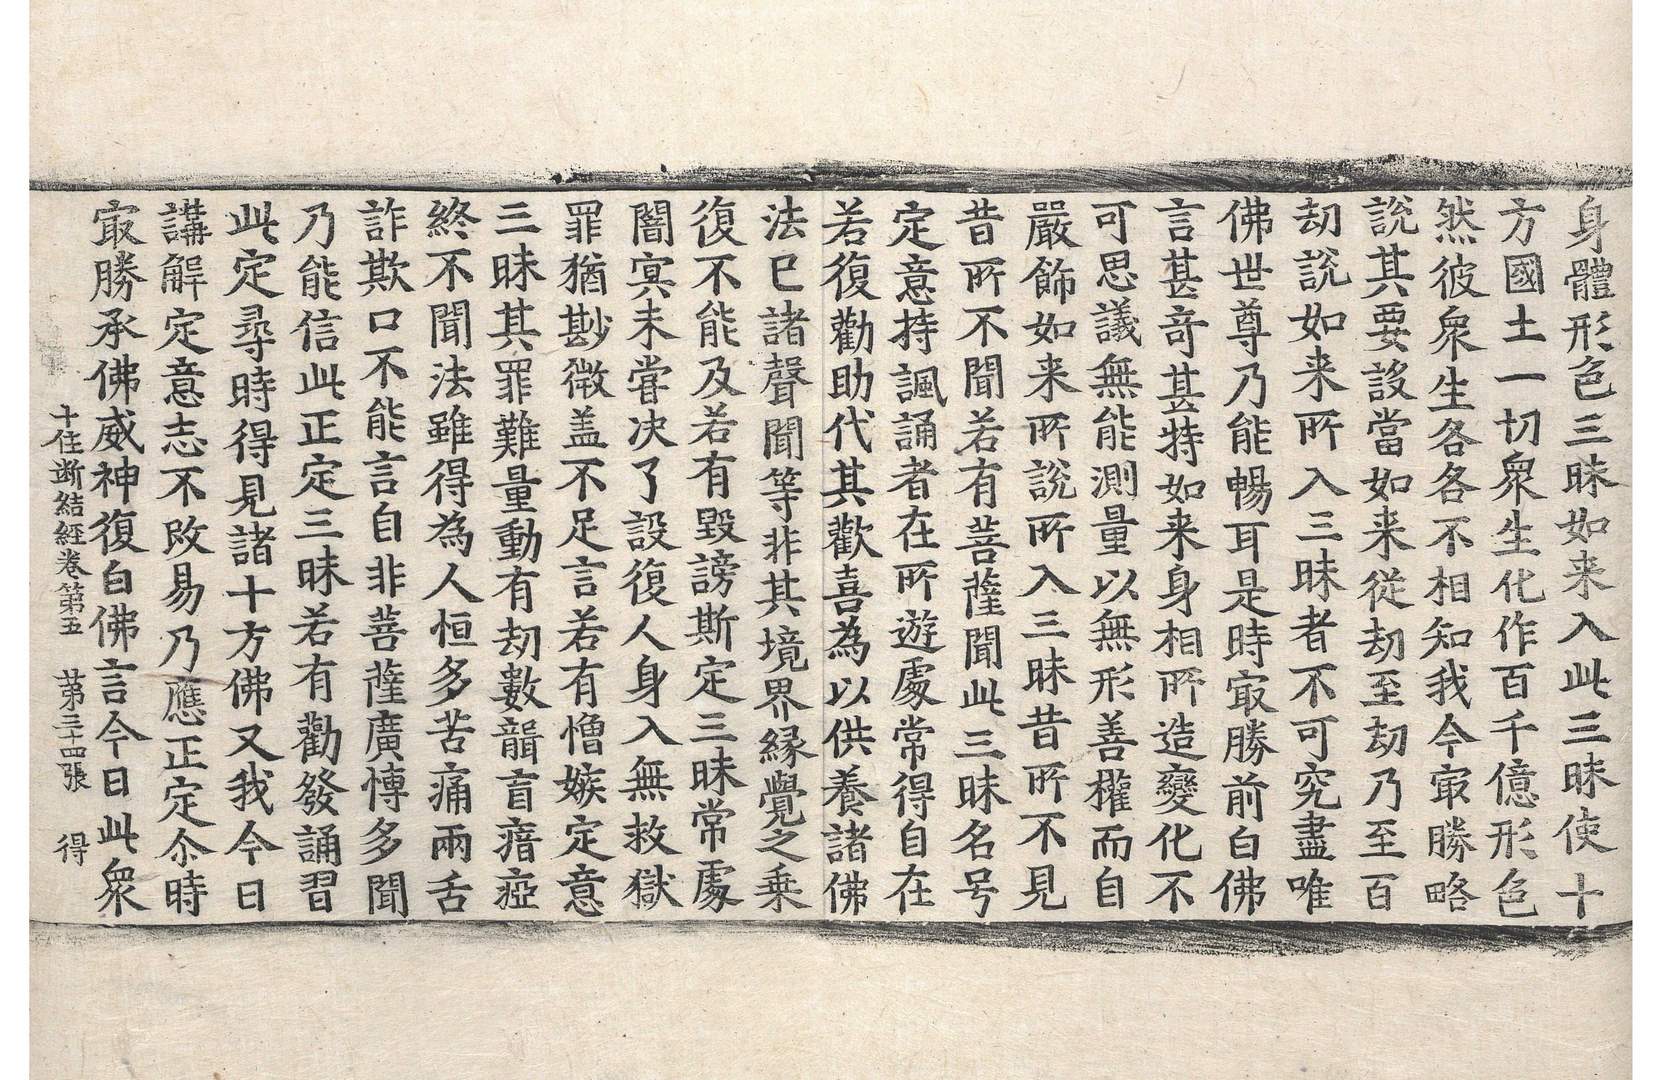 身體形色三昧如来入此三昧使十
方國土一切衆生化作百千億形色
然彼衆生各各不相知我今㝡勝略
說其要設當如来從劫至劫乃至百
劫說如来所入三昧者不可究盡唯
佛世尊乃能暢耳是時㝡勝前白佛
言甚奇甚特如来身相所造變化不
可思議無能測量以無形善權而自
嚴飾如来所說所入三昧昔所不見
昔所不聞若有菩薩聞此三昧名号
定意持諷誦者在所遊處常得自在
若復勸助代其歡喜為以供養諸佛
法已諸聲聞等非其境界緣覺之乗
復不能及若有毀謗斯定三昧常處
闇冥未甞决了設復人身入無救獄
罪猶尠微盖不足言若有憎嫉定意
三昧其罪難量動有劫數聾盲瘖瘂
終不聞法雖得為人恒多苦痛兩舌
詐欺口不能言自非菩薩廣愽多聞
乃能信此正定三昧若有勸發誦習
此定尋時得見諸十方佛又我今日
講解定意志不改易乃應正定尒時
㝡勝承佛威神復白佛言今日此衆
十住断結經卷第五 第三十四張 得